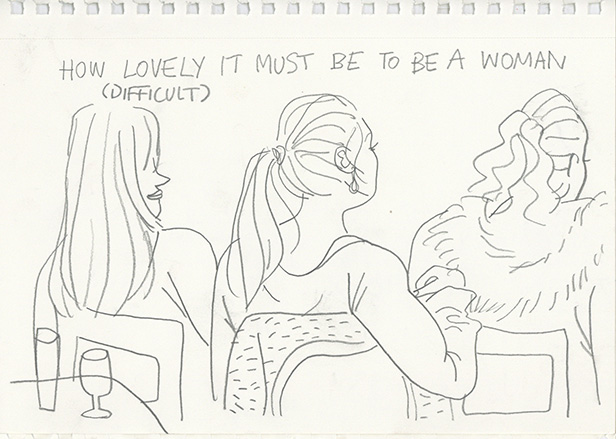 HOW LOVELY IT MUST BE TO BE A WOMAN
(DIFFICULT)